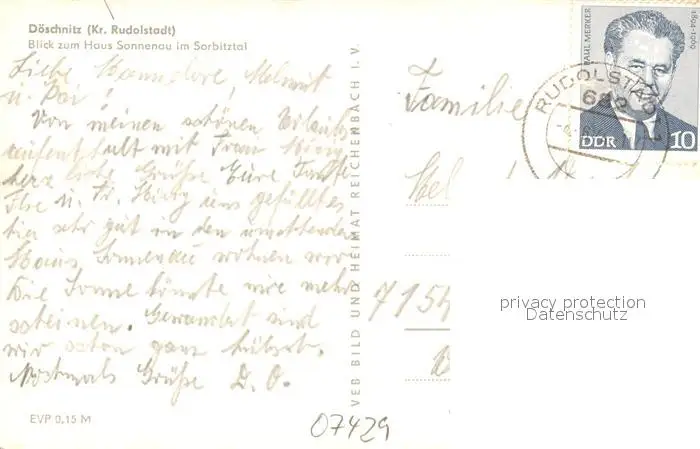 Döschnitz (Kr. Rudolstadt)
Blick zum Haus Sonnenau im Sorbitztal
Liebe Hannelore, Helmut
u. Pai!
Von meinen schönen Urlaubs
aufenthalt mit Frau König
herzliche Grüße Eure Tante
Ilse u. Fr. König uns gefällt es
hier sehr gut in den
Haus Sonnenau wohnen wir.
Die Sonne könnte nur mehr
scheinen. Gewandert sind
wir schon ganz hübsch.
Nochmals Grüße D. O.
EVP 0,15 M
VEB BILD UND HEIMAT REICHENBACH I. V.
Familie
7154
07429
PAUL MERKER
1894-1969
DDR
10
RUDOLSTADT 1
682
privacy protection
Datenschutz